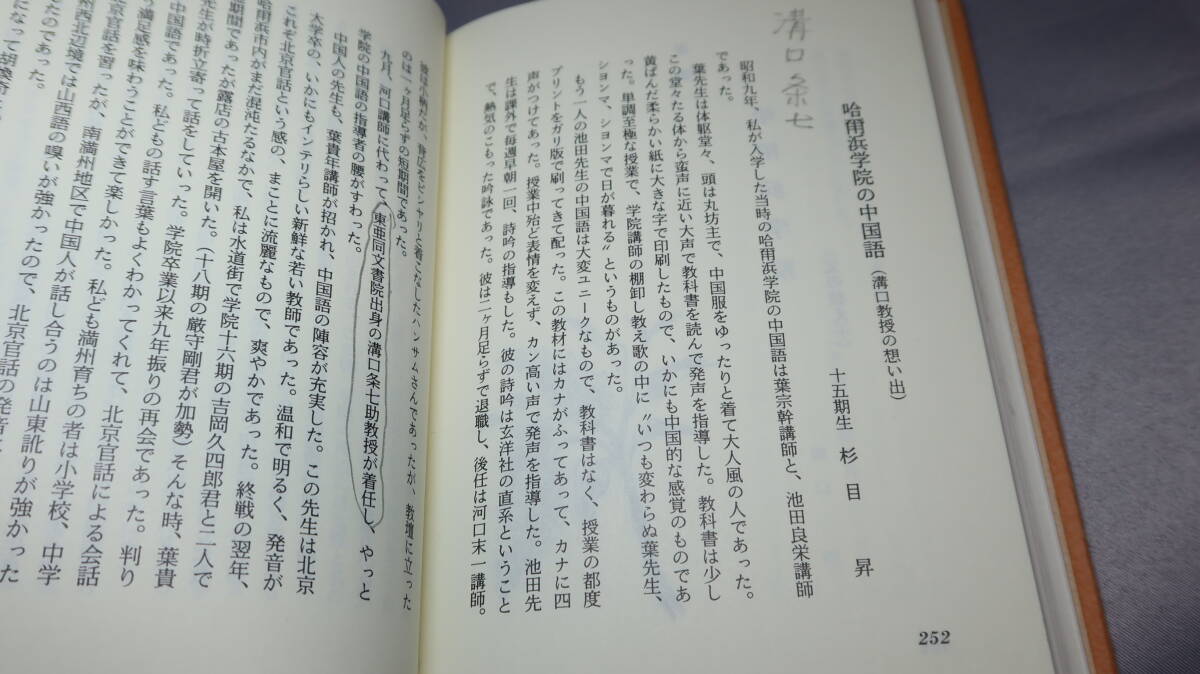 溝口条七
哈爾浜学院の中国語（溝口教授の想い出）
十五期生　杉目　昇
昭和九年、私が入学した当時の哈爾浜学院の中国語は葉宗幹講師と、池田良栄講師
であった。
葉先生は体躯堂々、頭は丸坊主で、中国服をゆったりと着て大人風の人であった。
この堂々たる体から蛮声に近い大声で教科書を読んで発声を指導した。教科書は少し
黄ばんだ柔らかい紙に大きな字で印刷したもので、いかにも中国的な感覚のものであ
った。単調至極な授業で、学院講師の棚卸し教え歌の中に〝いつも変わらぬ葉先生、
ションマ、ションマで日が暮れる〟というものがあった。
もう一人の池田先生の中国語は大変ユニークなもので、教科書はなく、授業の都度
プリントをガリ版で刷ってきて配った。この教材にはカナがふってあって、カナに四
声がつけてあった。授業中殆ど表情を変えず、カン高い声で発声を指導した。池田先
生は課外で毎週早朝一回、詩吟の指導もした。彼の詩吟は玄洋社の直系ということ
で、熱気のこもった吟詠であった。彼は二ヶ月足らずで退職し、後任は河口末一講師。
252
彼は小柄だが、背広をピシャリと着こなしたハンサムさんであったが、教壇に立った
のは一ヶ月足らずの短期間であった。
九月、河口講師に代わって、東亜同文書院出身の溝口条七助教授が着任し、やっと
学院の中国語の指導者の腰がすわった。
中国人の先生も、葉貴年講師が招かれ、中国語の陣容が充実した。この先生は北京
大学卒の、いかにもインテリらしい新鮮な若い教師であった。温和で明るく、発音が
これぞ北京官話という感の、まことに流麗なもので、爽やかであった。終戦の翌年、
哈爾浜市内がまだ混沌たるなかで、私は水道街で学院十六期の吉岡久四郎君と二人で
短期間であったが露店の古本屋を開いた。（十八期の厳守剛君が加勢）そんな時、葉貴
先生が時折立寄って話をしていった。学院卒業以来九年振りの再会であった。判り
中国語であった。私どもの話す言葉もよくわかってくれて、北京官話による会話
満足感を味わうことができて楽しかった。私ども満州育ちの者は小学校、中学
北京官話を習ったが、南満州地区で中国人が話し合うのは山東訛りが強かった
州西北辺境では山西語の嗅いが強かったので、北京官話の発音に
たのであった。
になって胡煥奇